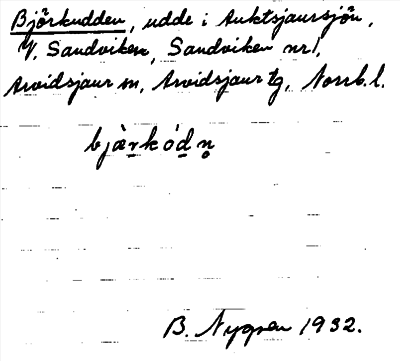 Björkudden, udde i Auktsjaursjön,
V. Sandviken, Sandviken nr 1,
Arvidsjaur sn, Arvidsjaur tg, Norrb. l.
bjὰrkód n̥
B. Nygren 1932.